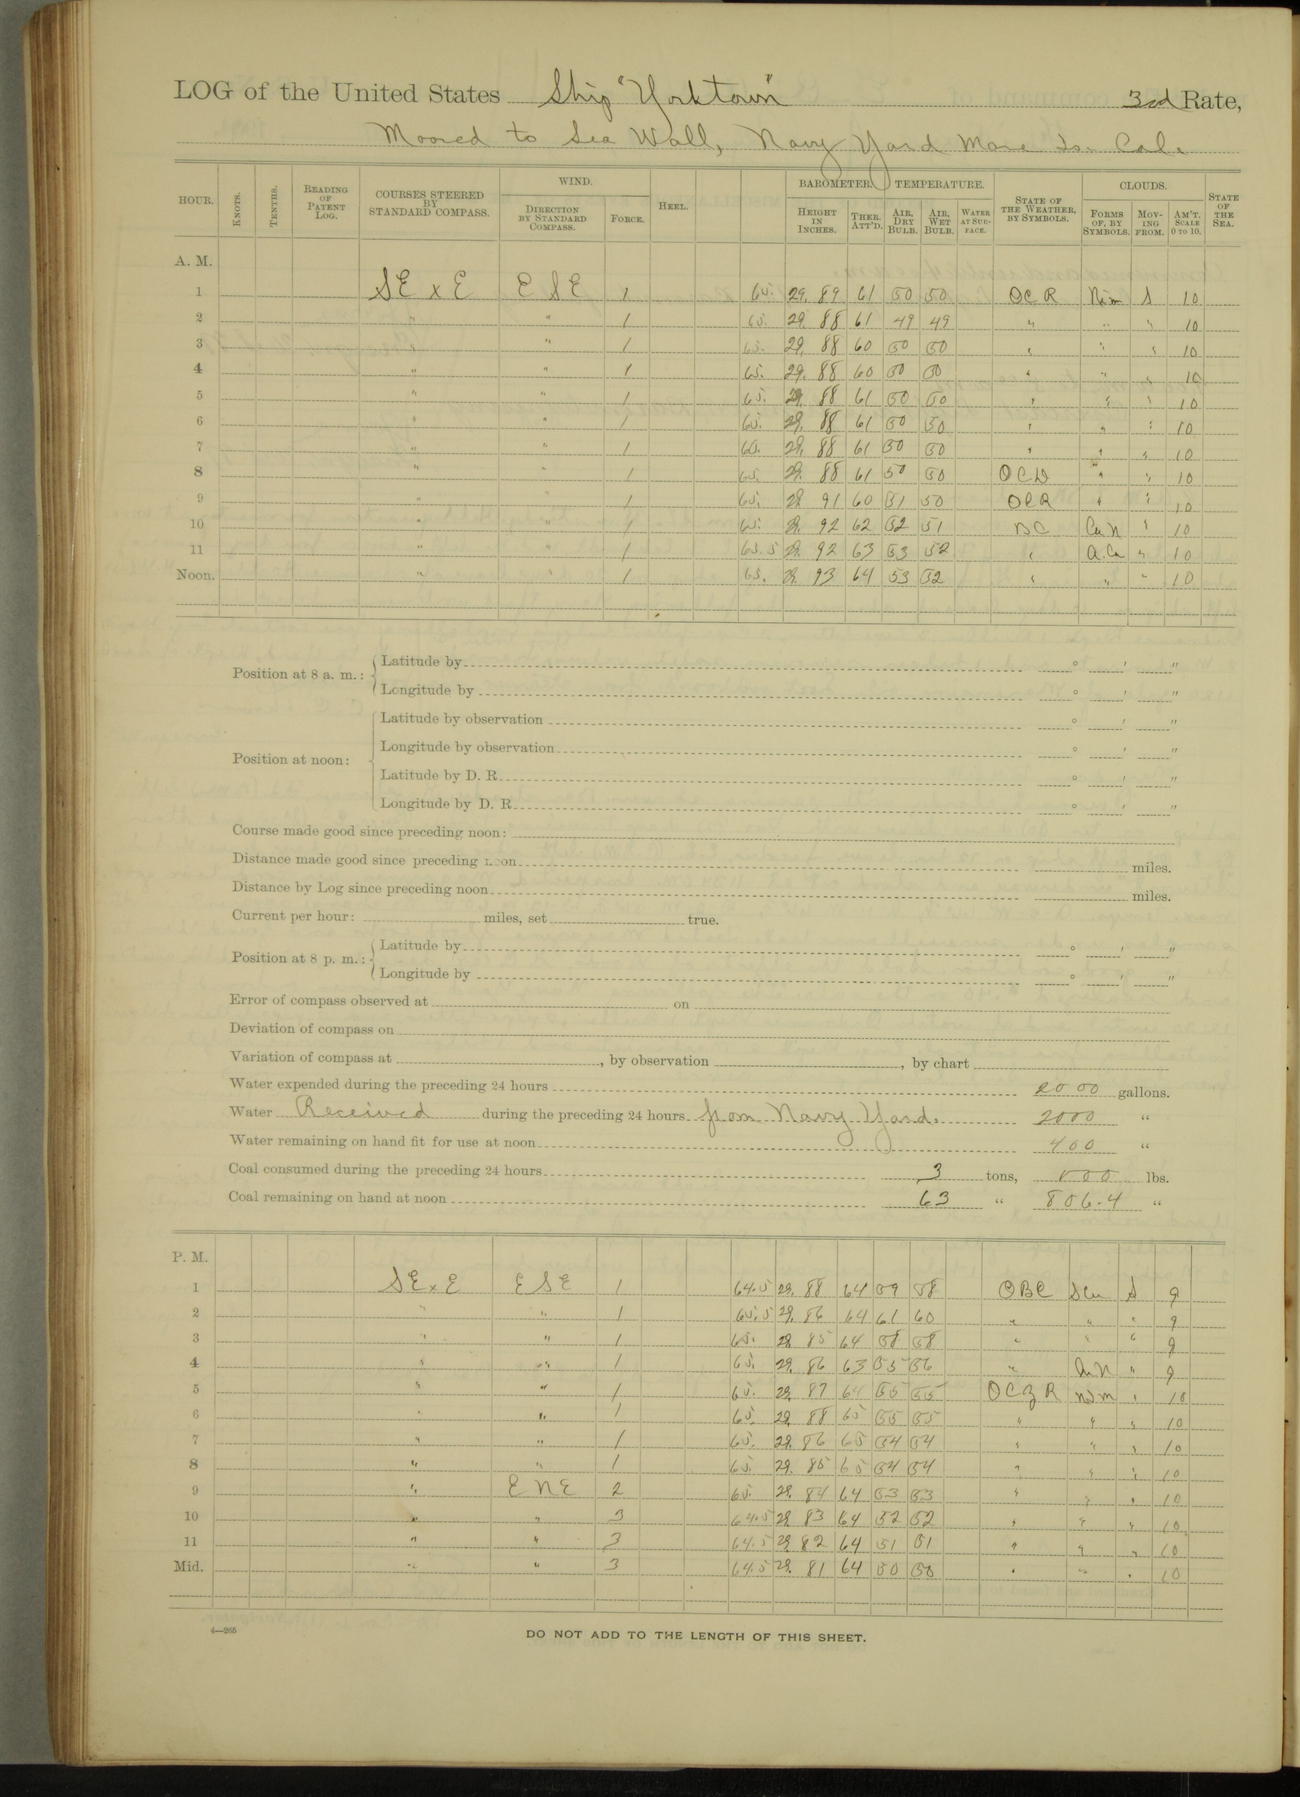 LOG of the United States Ship "Yorktown" 3rd Rate,
Moored to Sea Wall, Navy Yard Mare Is. Cal.
HOUR. KNOTS. TENTHS. READING OF PATENT LOG. COURSES STEERED BY STANDARD COMPASS. WIND. DIRECTION BY STANDARD COMPASS. FORCE. HEEL. BAROMETER. HEIGHT IN INCHES. THER. ATT'D. TEMPERATURE. AIR, DRY BULB. AIR, WET BULB. WATER AT SURFACE. STATE OF THE WEATHER, BY SYMBOLS. CLOUDS. FORMS OF, BY SYMBOLS. MOVING FROM. AM'T. SCALE 0 TO 10. STATE OF THE SEA.
A. M.
1 SE x E ESE 1 65. 29. 89 61 50 50 OCR Nim S 10
2 " " 1 65. 29. 88 61 49 49 " " " 10
3 " " 1 65. 29. 88 60 50 50 " " " 10
4 " " 1 65. 29. 88 60 50 50 " " " 10
5 " " 1 65. 29. 88 61 50 50 " " " 10
6 " " 1 65. 29. 88 61 50 50 " " " 10
7 " " 1 65. 29. 88 61 50 50 " " " 10
8 " " 1 65. 29. 88 61 50 50 OCD " " 10
9 " " 1 65. 29. 91 60 51 50 OCR " " 10
10 " " 1 65. 29. 92 62 52 51 BC Cu N " 10
11 " " 1 65.5 29. 92 63 53 52 " A.Cu " 10
Noon. " " 1 65. 29. 93 64 53 52 " " " 10
Position at 8 a. m.: Latitude by ° ' "
Longitude by ° ' "
Position at noon: Latitude by observation ° ' "
Longitude by observation ° ' "
Latitude by D. R. ° ' "
Longitude by D. R. ° ' "
Course made good since preceding noon:
Distance made good since preceding noon miles.
Distance by Log since preceding noon miles.
Current per hour: miles, set true.
Position at 8 p. m.: Latitude by ° ' "
Longitude by ° ' "
Error of compass observed at on
Deviation of compass on
Variation of compass at , by observation , by chart
Water expended during the preceding 24 hours 2000 gallons.
Water Received during the preceding 24 hours from Navy Yard. 2000 "
Water remaining on hand fit for use at noon 400 "
Coal consumed during the preceding 24 hours 3 tons, lbs.
Coal remaining on hand at noon 63 " 806.4 "
P. M.
1 SE x E ESE 1 64.5 29. 88 64 59 58 OBC SCu S 9
2 " " 1 65.5 29. 86 64 61 60 " " " 9
3 " " 1 65. 29. 85 64 58 58 " " " 9
4 " " 1 65. 29. 86 63 55 56 " Cu N " 9
5 " " 1 65. 29. 87 64 55 55 OCZR Nim " 10
6 " " 1 65. 29. 88 65 55 55 " " " 10
7 " " 1 65. 29. 86 65 54 54 " " " 10
8 " " 1 65. 29. 85 65 54 54 " " " 10
9 " ENE 2 65. 29. 84 64 53 53 " " " 10
10 " " 3 64.5 29. 83 64 52 52 " " " 10
11 " " 3 64.5 29. 82 64 51 51 " " " 10
Mid. " " 3 64.5 29. 81 64 50 50 " " " 10
4—265
DO NOT ADD TO THE LENGTH OF THIS SHEET.